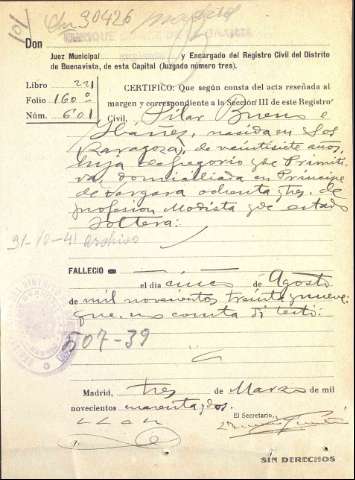 101 30426
Don
Juez Municipal y Encargado del Registro Civil del Distrito
de Buenavista, de esta Capital (Juzgado número tres).
Libro 221
Folio 160
Núm. 601
CERTIFICO: Que según consta del acta reseñada al
margen y correspondiente a la Sección III de este Registro
Civil, Pilar Bueno e
Ibañez, nacida en Sos
Zaragoza, de veintisiete años,
hija de Gregorio y de Primiti
va, domiciliada en Príncipe
de Vergara ochenta y tres, de
profesion Modista y de estado
soltera:
31-10-41 archivo
FALLECIO
el día cinco de Agosto
de mil novecientos treinta y nueve,
que no consta di testó:
507-39
Madrid, tres de Marzo de mil
novecientos cuarenta y dos.
El Secretario,
SIN DERECHOS